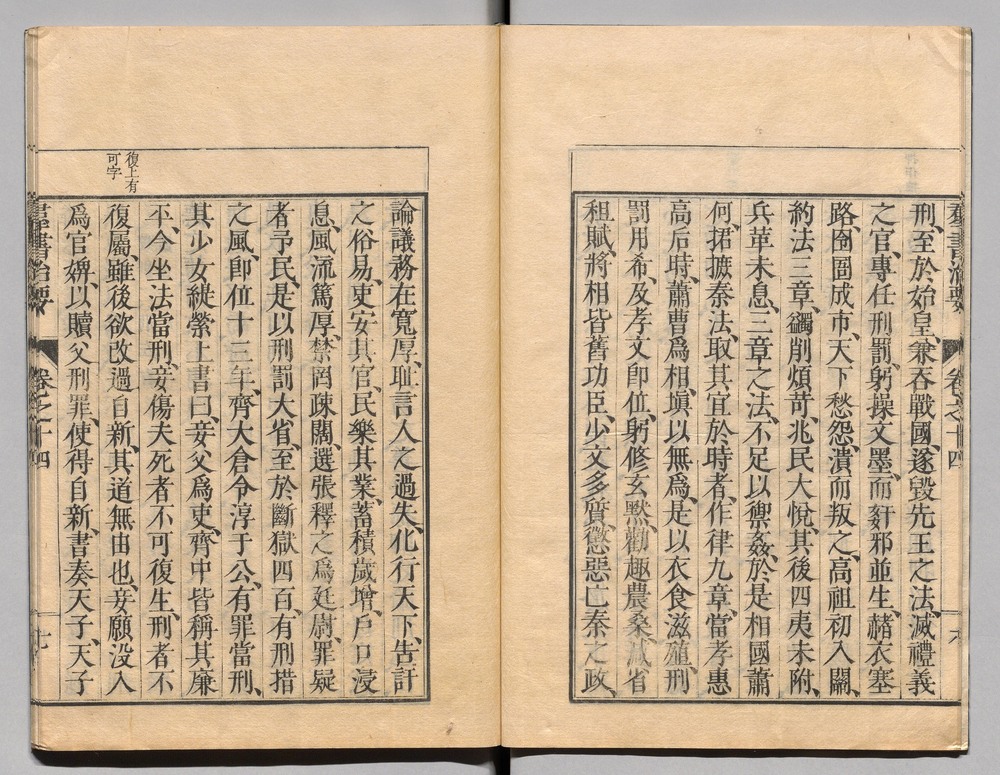 羣書治要 卷之十四 六
刑、至於始皇、兼吞戰國、遂毀先王之法、滅禮義
之官、專任刑罰、躬操文墨、而姧邪並生、赭衣塞
路、囹圄成市、天下愁怨、潰而叛之、高祖初入關、
約法三章、蠲削煩苛、兆民大悅、其後四夷未附、
兵革未息、三章之法、不足以禦姦、於是相國蕭
何、捃摭秦法、取其宜於時者、作律九章、當孝惠
高后時、蕭曹爲相、塡以無爲、是以衣食滋殖、刑
罰用希、及孝文卽位、躬修玄默、勸趣農桑、減省
租賦、將相皆舊功臣、少文多質、懲惡亡秦之政、
論議務在寬厚、耻言人之過失、化行天下、告訐
之俗易、吏安其官、民樂其業、蓄積歲增、戶口浸
息、風流篤厚、禁罔疎闊、選張釋之爲廷尉、罪疑
者予民、是以刑罰大省、至於斷獄四百、有刑措
之風、卽位十三年、齊大倉令淳于公、有罪當刑、
其少女緹縈上書曰、妾父爲吏、齊中皆稱其廉
平、今坐法當刑、妾傷夫死者不可復生、刑者不
復屬、雖後欲改過自新、其道無由也、妾願沒入
爲官婢、以贖父刑罪、使得自新、書奏天子、天子
復上有
可字
羣書治要 卷之十四 七